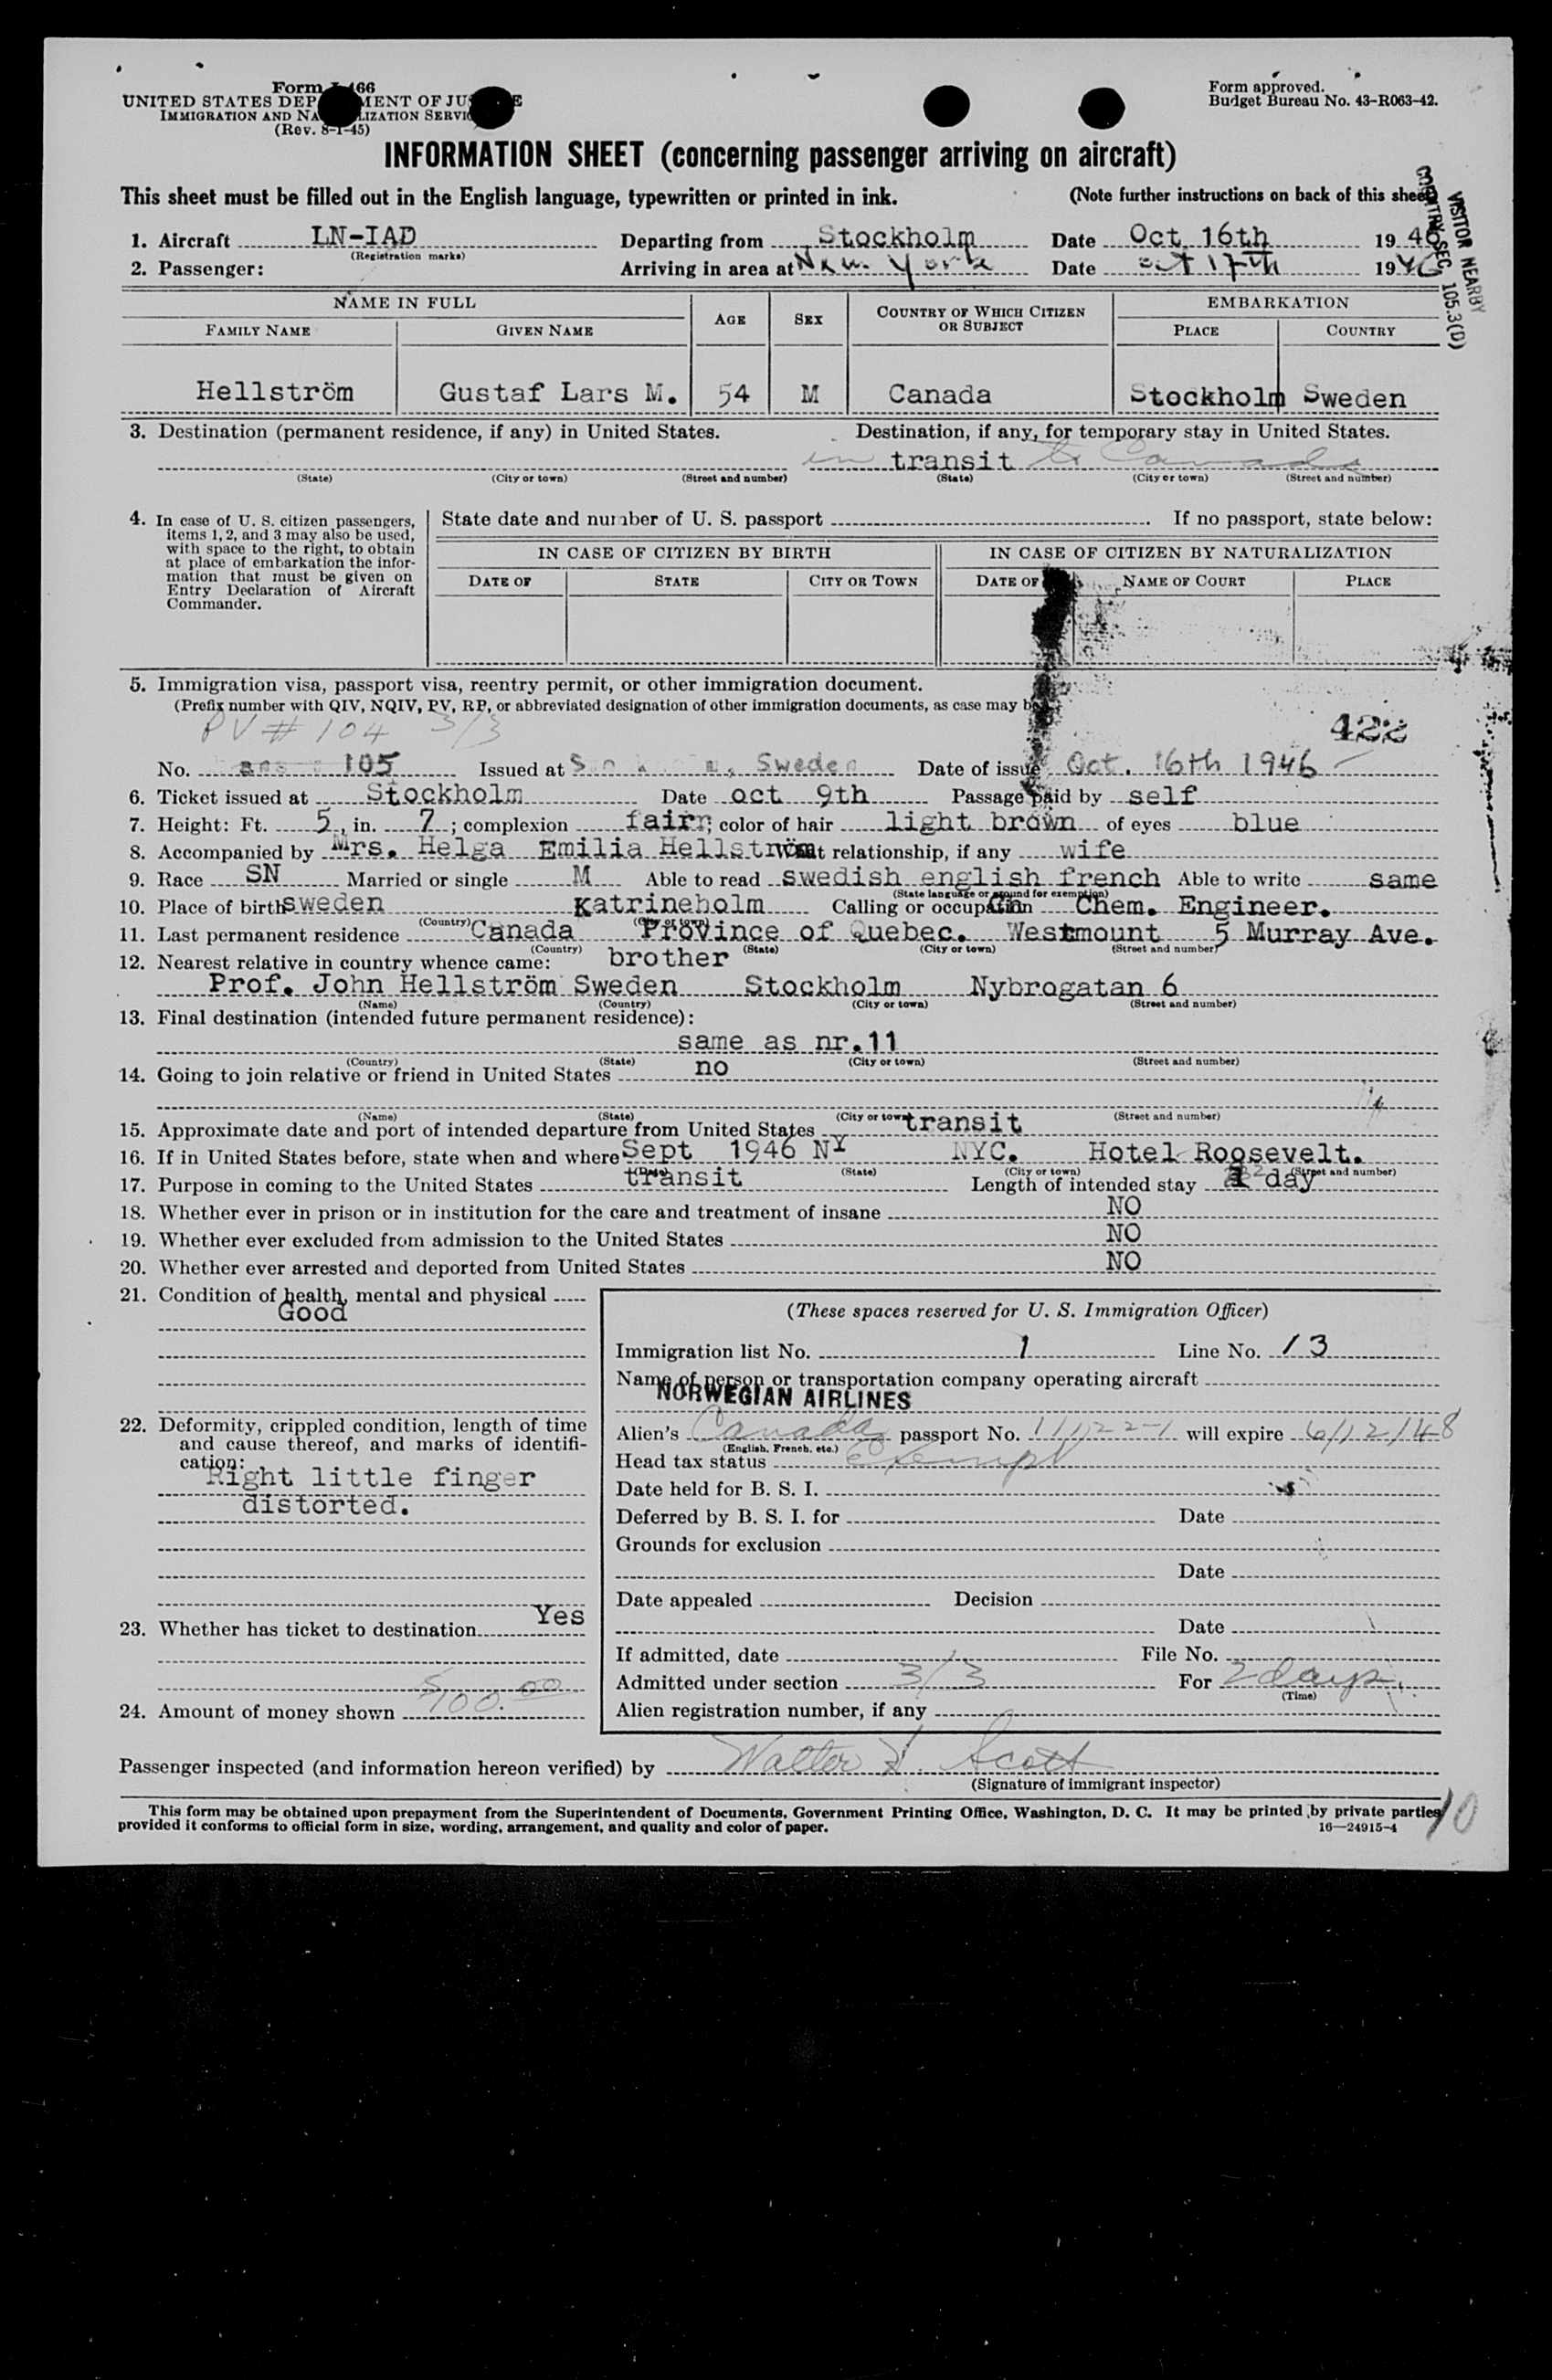 Form I-466
UNITED STATES DEPARTMENT OF JUSTICE
IMMIGRATION AND NATURALIZATION SERVICE
(Rev. 8-1-45)
Form approved.
Budget Bureau No. 43-R063-42.
INFORMATION SHEET (concerning passenger arriving on aircraft)
This sheet must be filled out in the English language, typewritten or printed in ink. (Note further instructions on back of this sheet)
VISITOR NEARBY
COUNTRY SEC. 105.3(D)
1. Aircraft LN-IAD Departing from Stockholm Date Oct. 16th 1946
(Registration marks)
2. Passenger: Arriving in area at New York Date oct 17th 1946
NAME IN FULL AGE SEX COUNTRY OF WHICH CITIZEN OR SUBJECT EMBARKATION
FAMILY NAME GIVEN NAME PLACE COUNTRY
Hellström Gustaf Lars M. 54 M Canada Stockholm Sweden
3. Destination (permanent residence, if any) in United States. Destination, if any, for temporary stay in United States.
in transit to Canada
(State) (City or town) (Street and number) (State) (City or town) (Street and number)
4. In case of U. S. citizen passengers, items 1, 2, and 3 may also be used, with space to the right, to obtain at place of embarkation the information that must be given on Entry Declaration of Aircraft Commander.
State date and number of U. S. passport . If no passport, state below:
IN CASE OF CITIZEN BY BIRTH IN CASE OF CITIZEN BY NATURALIZATION
DATE OF STATE CITY OR TOWN DATE OF NAME OF COURT PLACE
5. Immigration visa, passport visa, reentry permit, or other immigration document.
(Prefix number with QIV, NQIV, PV, RP, or abbreviated designation of other immigration documents, as case may be)
PV # 104 3/3 422
No. 105 Issued at Sweden Date of issue Oct. 16th 1946
6. Ticket issued at Stockholm Date oct 9th Passage paid by self
7. Height: Ft. 5, in. 7; complexion fair; color of hair light brown of eyes blue
8. Accompanied by Mrs. Helga Emilia Hellström What relationship, if any wife
9. Race SN Married or single M Able to read swedish english french Able to write same
(State language or ground for exemption)
10. Place of birth sweden Katrineholm Calling or occupation Chem. Engineer.
(Country) (City or town)
11. Last permanent residence Canada Province of Quebec. Westmount 5 Murray Ave.
(Country) (State) (City or town) (Street and number)
12. Nearest relative in country whence came: brother
Prof. John Hellström Sweden Stockholm Nybrogatan 6
(Name) (Country) (City or town) (Street and number)
13. Final destination (intended future permanent residence):
same as nr.11
(Country) (State) (City or town) (Street and number)
14. Going to join relative or friend in United States no
(Name) (State) (City or town) (Street and number)
15. Approximate date and port of intended departure from United States transit
16. If in United States before, state when and where Sept 1946 NY NYC. Hotel Roosevelt.
(Date) (State) (City or town) (Street and number)
17. Purpose in coming to the United States transit Length of intended stay 2 day
18. Whether ever in prison or in institution for the care and treatment of insane NO
19. Whether ever excluded from admission to the United States NO
20. Whether ever arrested and deported from United States NO
21. Condition of health, mental and physical
Good
22. Deformity, crippled condition, length of time and cause thereof, and marks of identification:
Right little finger
distorted.
23. Whether has ticket to destination Yes
24. Amount of money shown 00
(These spaces reserved for U. S. Immigration Officer)
Immigration list No. 1 Line No. 13
Name of person or transportation company operating aircraft
NORWEGIAN AIRLINES
Alien's Canada passport No. 11/1221 will expire 6/12/48
(English, French, etc.)
Head tax status Exempt
Date held for B. S. I.
Deferred by B. S. I. for Date
Grounds for exclusion
Date
Date appealed Decision
Date
If admitted, date File No.
Admitted under section 3/3 For 2 days
(Time)
Alien registration number, if any
Passenger inspected (and information hereon verified) by Walter Scott
(Signature of immigrant inspector)
This form may be obtained upon prepayment from the Superintendent of Documents, Government Printing Office, Washington, D. C. It may be printed by private parties
provided it conforms to official form in size, wording, arrangement, and quality and color of paper. 16—24915-4
10